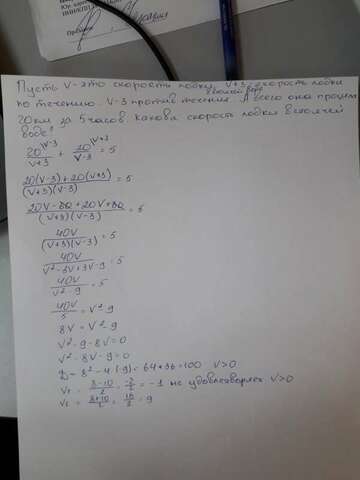 Пусть V-это скорость лодки, V+3 скорость лодки
в стоячей воде
по течению. V-3 против течения. А всего она прошла
20км за 5 часов. Какова скорость лодки в стоячей
воде?
20^(V-3)/(V+3) + 20^(V+3)/(V-3) = 5
20(V-3)+20(V+3)/(V+3)(V-3) = 5
20V-60+20V+60/(V+3)(V-3) = 5
40V/(V+3)(V-3) = 5
40V/V²-3V+3V-9 = 5
40V/V²-9 = 5
40V/5 = V²-9
8V = V²-9
V²-9-8V=0
V²-8V-9=0
D= 8²-4·(-9)=64+36=100 V>0
V₁ = 8-10/2 = -2/2 = -1 не удовлетворяет V>0
V₂ = 8+10/2 = 18/2 = 9